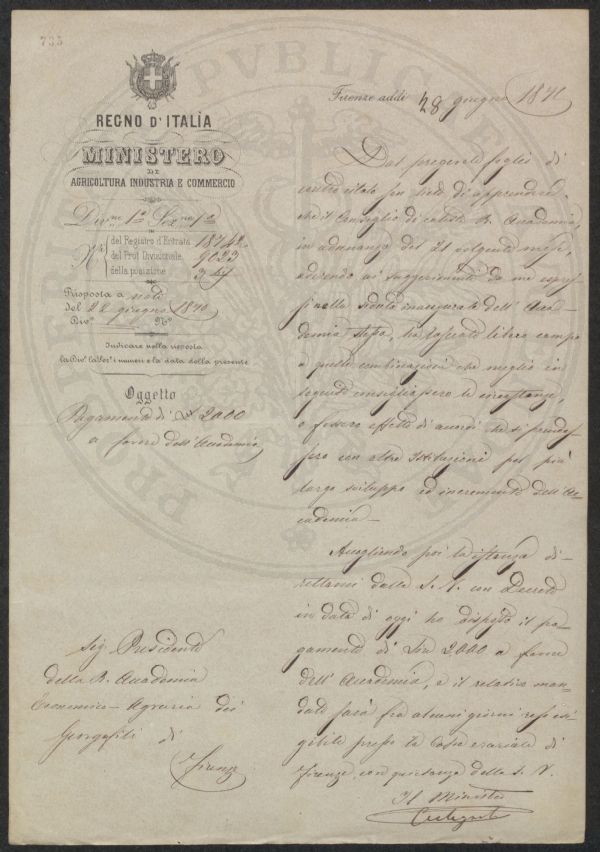 735
REGNO D'ITALIA
MINISTERO
DI
AGRICOLTURA INDUSTRIA E COMMERCIO
Div.ne 1a Sez.ne 1a
N.i
del Registro d'Entrata 18742
del Prot. Divisionale 9023
della posizione
Risposta a nota
del 22 giugno 1870
Div.e N.o
Indicare nella risposta
la Div.e la Sez.e i numeri e la data della presente
Oggetto
Pagamento di £ 2000
a favore dell'Accademia
Sig. Presidente
della R. Accademia
Economico-Agraria dei
Georgofili di
Firenze
Firenze addì 28 giugno 1870
Dal pregevole foglio di
contro citato fu lieto di apprendere
che il Consiglio di codesta R. Accademia,
in adunanza del 21 volgente mese,
aderendo ai suggerimenti da me espres-
si nella seduta inaugurale dell'Acca-
demia stessa, ha lasciato libero campo
a quelle combinazioni che meglio in
seguito consigliassero le circostanze,
o fossero effetto di accordi che si prendes-
sero con altre Istituzioni pel più
largo sviluppo ed incremento dell'Ac-
cademia —
Accogliendo poi la istanza di-
rettami dalla S. V. con Decreto
in data di oggi ho disposto il pa-
gamento di Lire 2000 a favore
dell'Accademia, e il relativo man-
dato sarà fra alcuni giorni reso esi-
gibile presso la Cassa erariale di
Firenze, con quietanza della S. V.
Il Ministro
PVBLIC